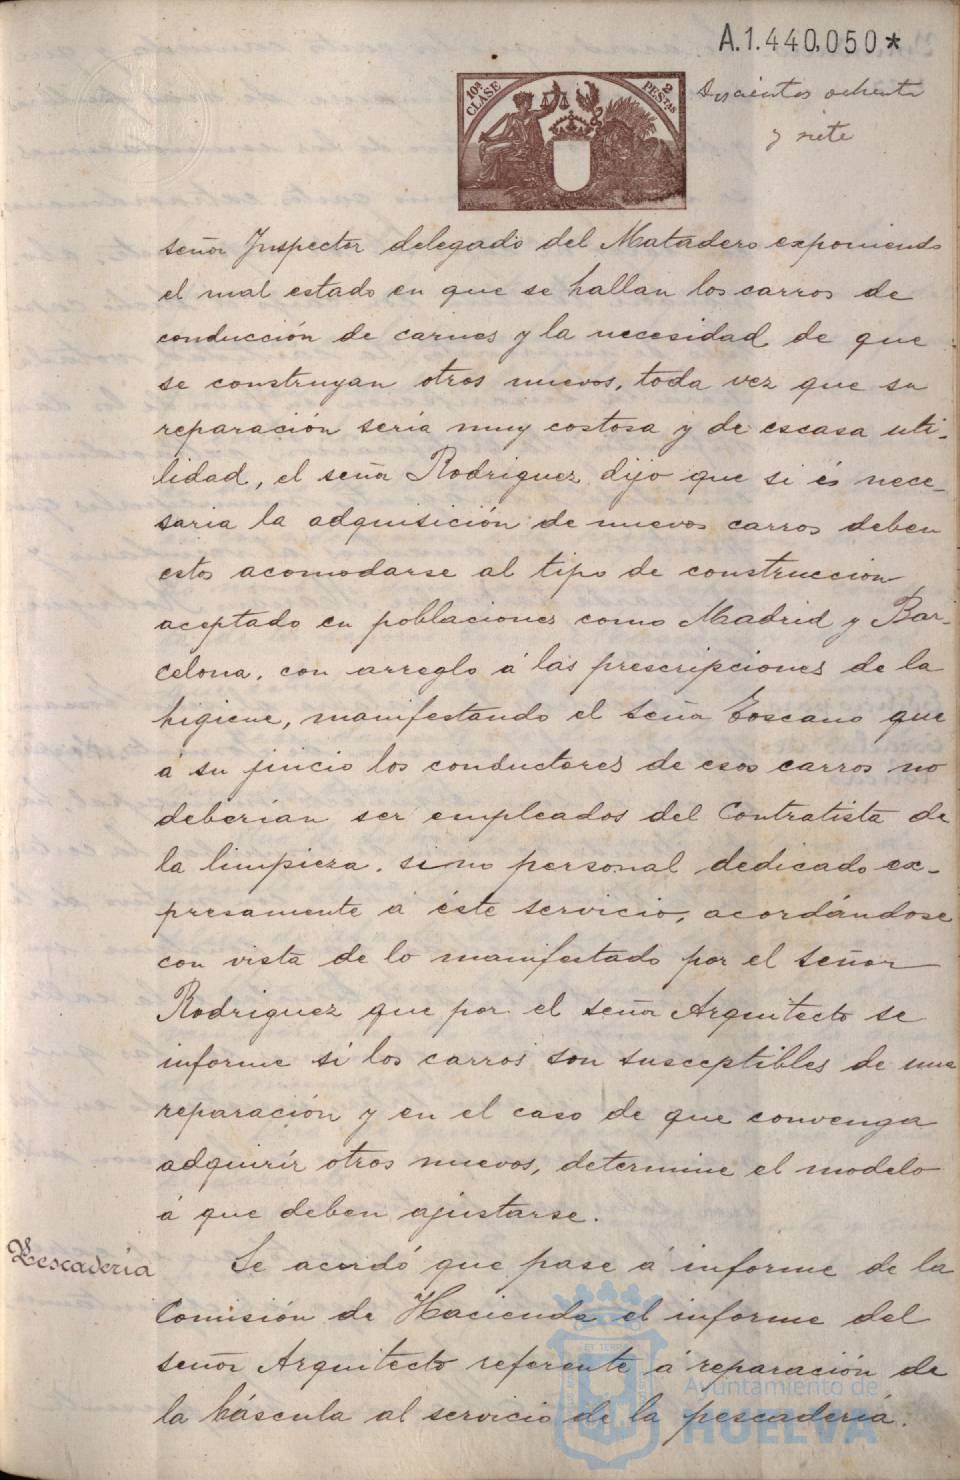 A.1.440,050*
10ª CLASE
2 PESTAS
Doscientos ochenta
y siete
señor Inspector delegado del Matadero exponiendo
el mal estado en que se hallan los carros de
conducción de carnes y la necesidad de que
se construyan otros nuevos, toda vez que su
reparación sería muy costosa y de escasa uti-
lidad, el señor Rodriguez dijo que si és nece-
saria la adquisición de nuevos carros deben
estos acomodarse al tipo de construccion
aceptado en poblaciones como Madrid y Bar-
celona, con arreglo á las prescripciones de la
higiene, manifestando el señor Toscano que
á su juicio los conductores de esos carros no
deberían ser empleados del Contratista de
la limpieza, sino personal dedicado ex-
presamente á éste servicio, acordándose
con vista de lo manifestado por el señor
Rodriguez que por el señor Arquitecto se
informe si los carros son susceptibles de una
reparación y en el caso de que convenga
adquirír otros nuevos, determine el modelo
á que deben ajustarse.
Pescadería
Se acordó que pase á informe de la
Comisión de Hacienda el informe del
señor Arquitecto referente á reparación de
la báscula al servicio de la pescadería.
Ayuntamiento de
HUELVA